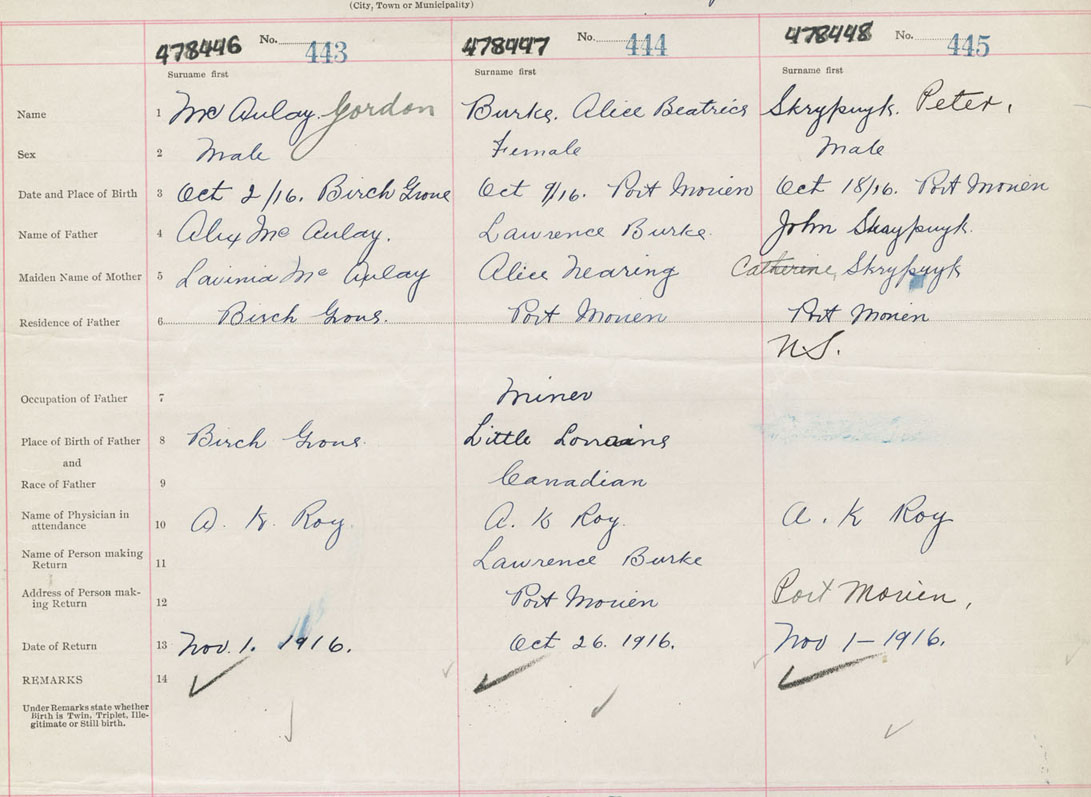 (City, Town or Municipality)
478446 No. 443 478447 No. 444 478448 No. 445
Surname first Surname first Surname first
Name 1 Mc Aulay. Gordon Burke. Alice Beatrice Skrypuyk. Peter.
Sex 2 Male Female Male
Date and Place of Birth 3 Oct 2/16. Birch Grove Oct 9/16. Port Morien Oct 18/16. Port Morien
Name of Father 4 Alex Mc Aulay. Lawrence Burke. John Skrypuyk.
Maiden Name of Mother 5 Lavinia Mc Aulay Alice Nearing Catherine Skrypuyk
Residence of Father 6 Birch Grove. Port Morien Port Morien
N.S.
Occupation of Father 7 Miner
Place of Birth of Father 8 Birch Grove. Little Lorraine
and
Race of Father 9 Canadian
Name of Physician in
attendance 10 A. K. Roy. A. K Roy. A. K Roy
Name of Person making
Return 11 Lawrence Burke
Address of Person mak-
ing Return 12 Port Morien Port Morien,
Date of Return 13 Nov. 1. 1916. Oct 26. 1916. Nov 1 - 1916.
REMARKS 14
Under Remarks state whether
Birth is Twin, Triplet, Ille-
gitimate or Still birth.